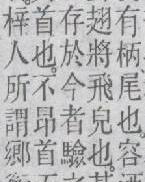 有柄尾也。容
翅將飛皃也。
存於今者驗
首也。不昂首
梓人所謂鄉